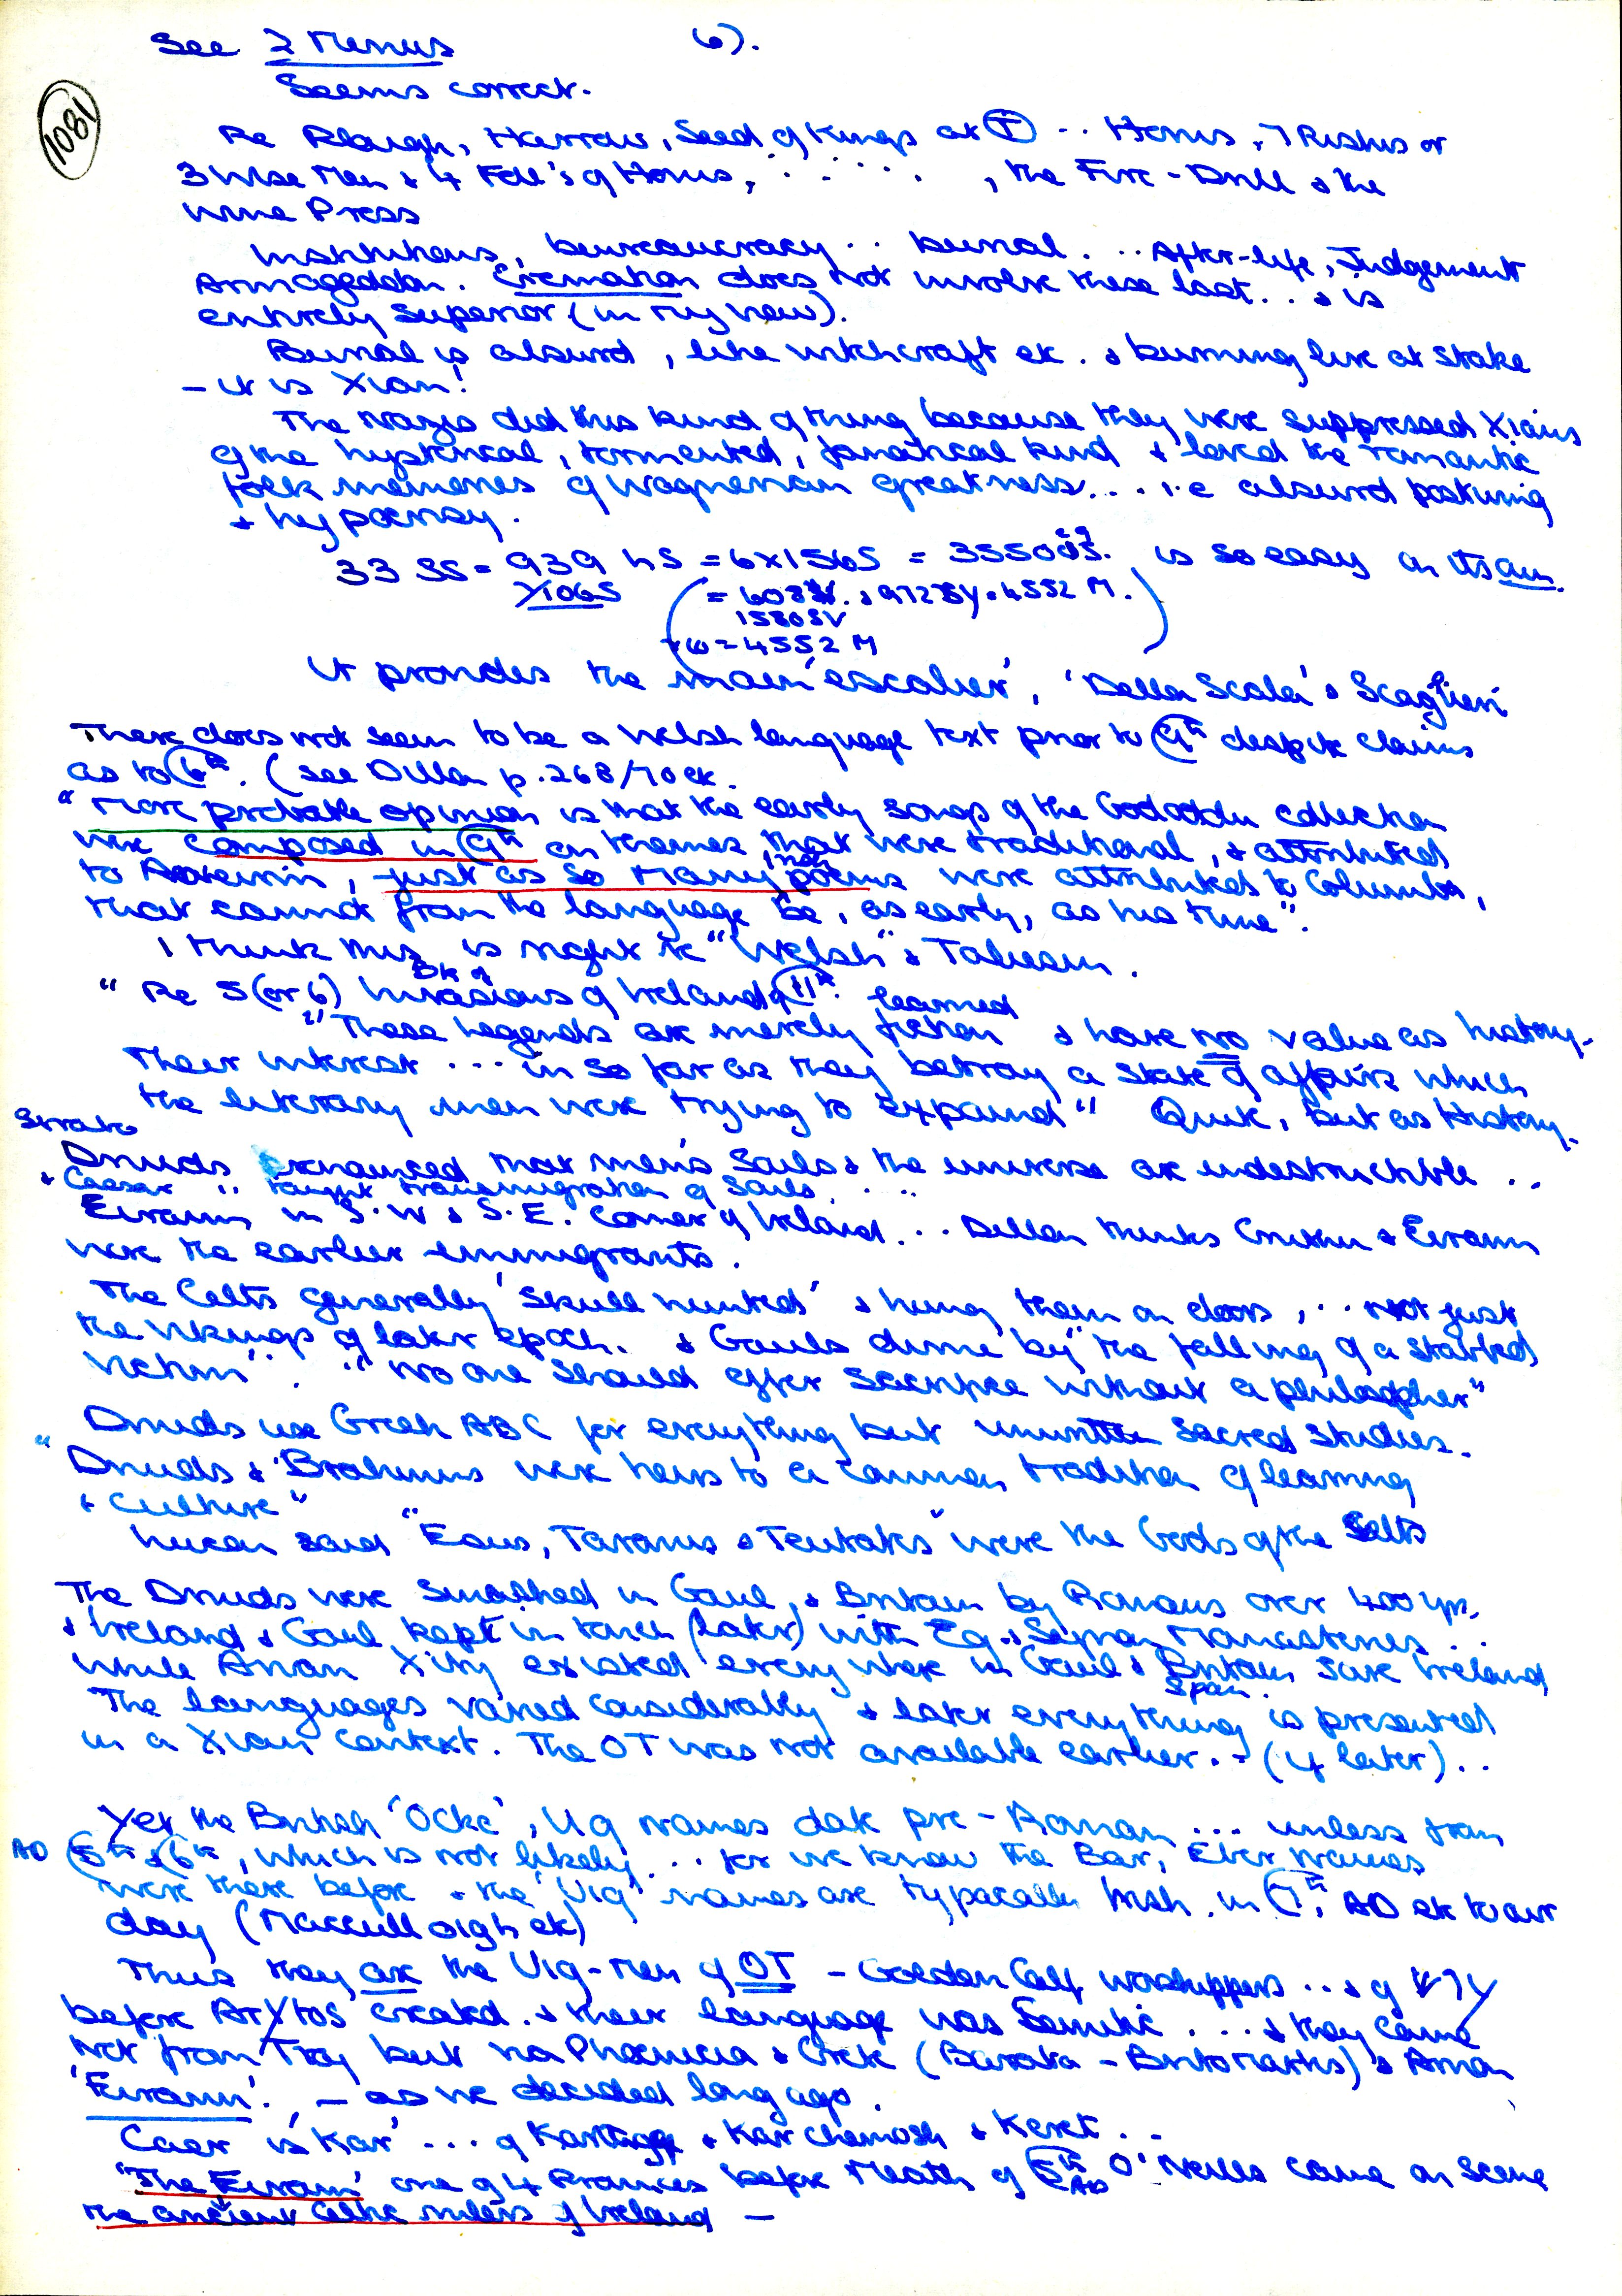 See 2 Menus 6).
Seems correct.
1081
Re Plough, Harrow, Seed of Kings at T .. Horus, 7 Rishis or
3 Wise Men & 4 of Horus, . . . . . , the Fire-Drill & the
Wine Press
Institutions, bureaucracy .. burial. .. After-life, Judgement
Armageddon. Cremation does not involve these last .. & is
entirely superior (in my view).
Burial is absurd, like witchcraft etc. & burning live at stake
- it is Xian!
The Nazis did this kind of thing because they were suppressed Xians
of the hysterical, tormented, fanatical kind & loved the romantic
folk memories of Wagnerian greatness... i.e absurd posturing
& hypocrisy.
33 SS = 939 hS = 6x1565 = 3550 is so easy on its own.
It provides the main 'escalier', 'Della Scala' & Scaglieri
There does not seem to be a Welsh language text prior to 9th despite claims
as to 6th. (see Dillon p.268/70 etc.
"More probable opinion is that the early songs of the Gododdin collection
were composed in 9th on themes that were traditional, & attributed
to Aneirin, just as so many Irish poems were attributed to Columba,
that cannot from the language be, as early, as his time".
I think this is right re "Welsh" & Taliesin.
"Re 5 (or 6) Bk of Invasions of Ireland of 11th.
"These legends are merely learned fiction & have no value as history.
Their interest ... in so far as they betray a state of affairs which
the literary men were trying to expound" Quite, but as History.
Strabo
Druids pronounced that men's souls & the universe are indestructible ..
& Caesar " taught transmigration of souls. . ..
Erainn in S.W & S.E. corner of Ireland... Dillon thinks Cruithin & Erainn
were the earlier immigrants.
The Celts generally 'skull hunted' & hung them on doors, .. not just
the Vikings of later epoch. & Gauls divine by "the falling of a stabbed
victim". "No one should offer sacrifice without a philosopher"
Druids use Greek ABC for everything but unwritten sacred studies.
"Druids & Brahmins were heirs to a common tradition of learning
& culture"
Lucan said "Esus, Taranus & Teutates" were the Gods of the Celts
The Druids were smashed in Gaul, & Britain by Romans over 400 yrs.
& Ireland & Gaul kept in touch (later) with Eg. & Syrian Monasteries ..
while Arian Xity existed everywhere in Gaul & Britain Spain save Ireland
The languages varied considerably & later everything is presented
in a Xian context. The OT was not available earlier .. (if later) ..
Yet the British 'Ocke', Uig names date pre-Roman ... unless from
AD 5th & 6th, which is not likely ... for we know the Bar, Eber names
were there before & the 'Uig' names are typically Irish in 7th AD etc to our
day (Maccull oigh etc)
Thus they are the Uig-men of OT - Golden Calf worshippers ... & of
before created. & their language was Semitic ... & they came
not from Troy but via Phoenicia & Crete (Barata - Britomartis) & Arran
'Eirann'. - as we decided long ago.
Caer is 'Kar' ... of Karthage & Kar Chemosh & Keret ..
'The Erann' one of 4 Provinces before Meath of 5th AD O'Neills came on scene
the ancient Celtic rulers of Ireland -